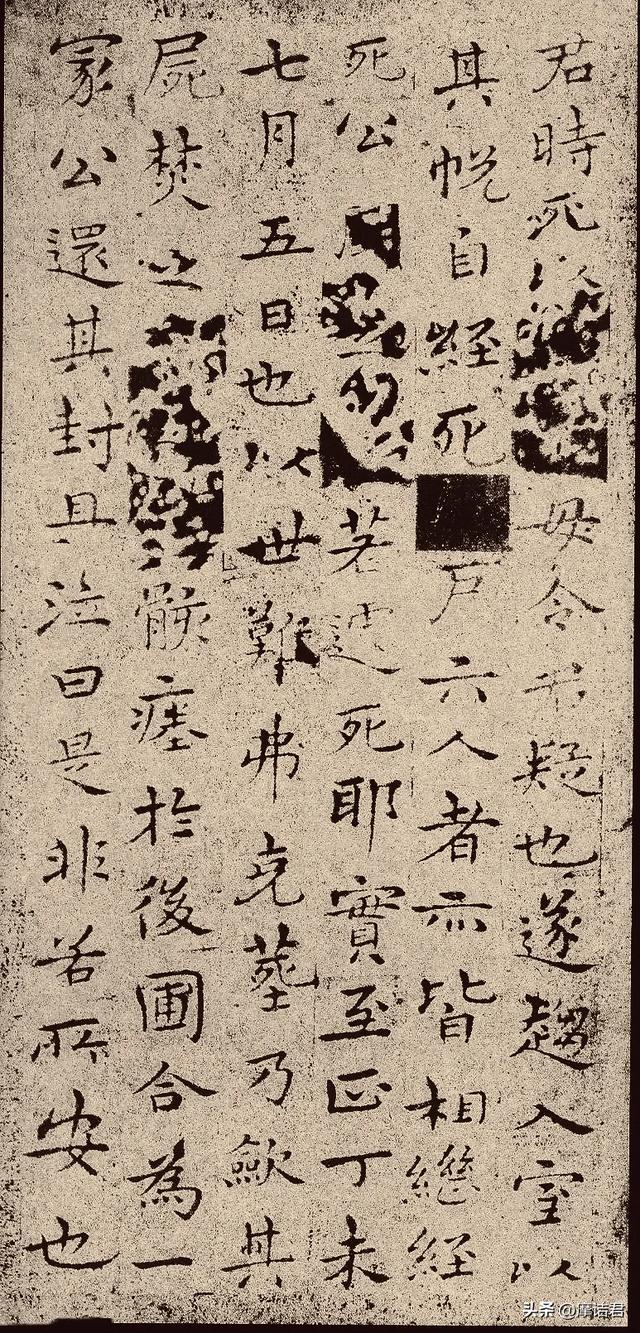 君時死以毋令君疑也遂趨入室以
其帨自經死戶六人者亦皆相繼經
死公若遽死耶實至正丁未
七月五日也以世難弗克葬乃斂其
屍焚之骸瘞於後圃合為一
冢公還其封且泣曰是非若所安也
头条 @摩诘君